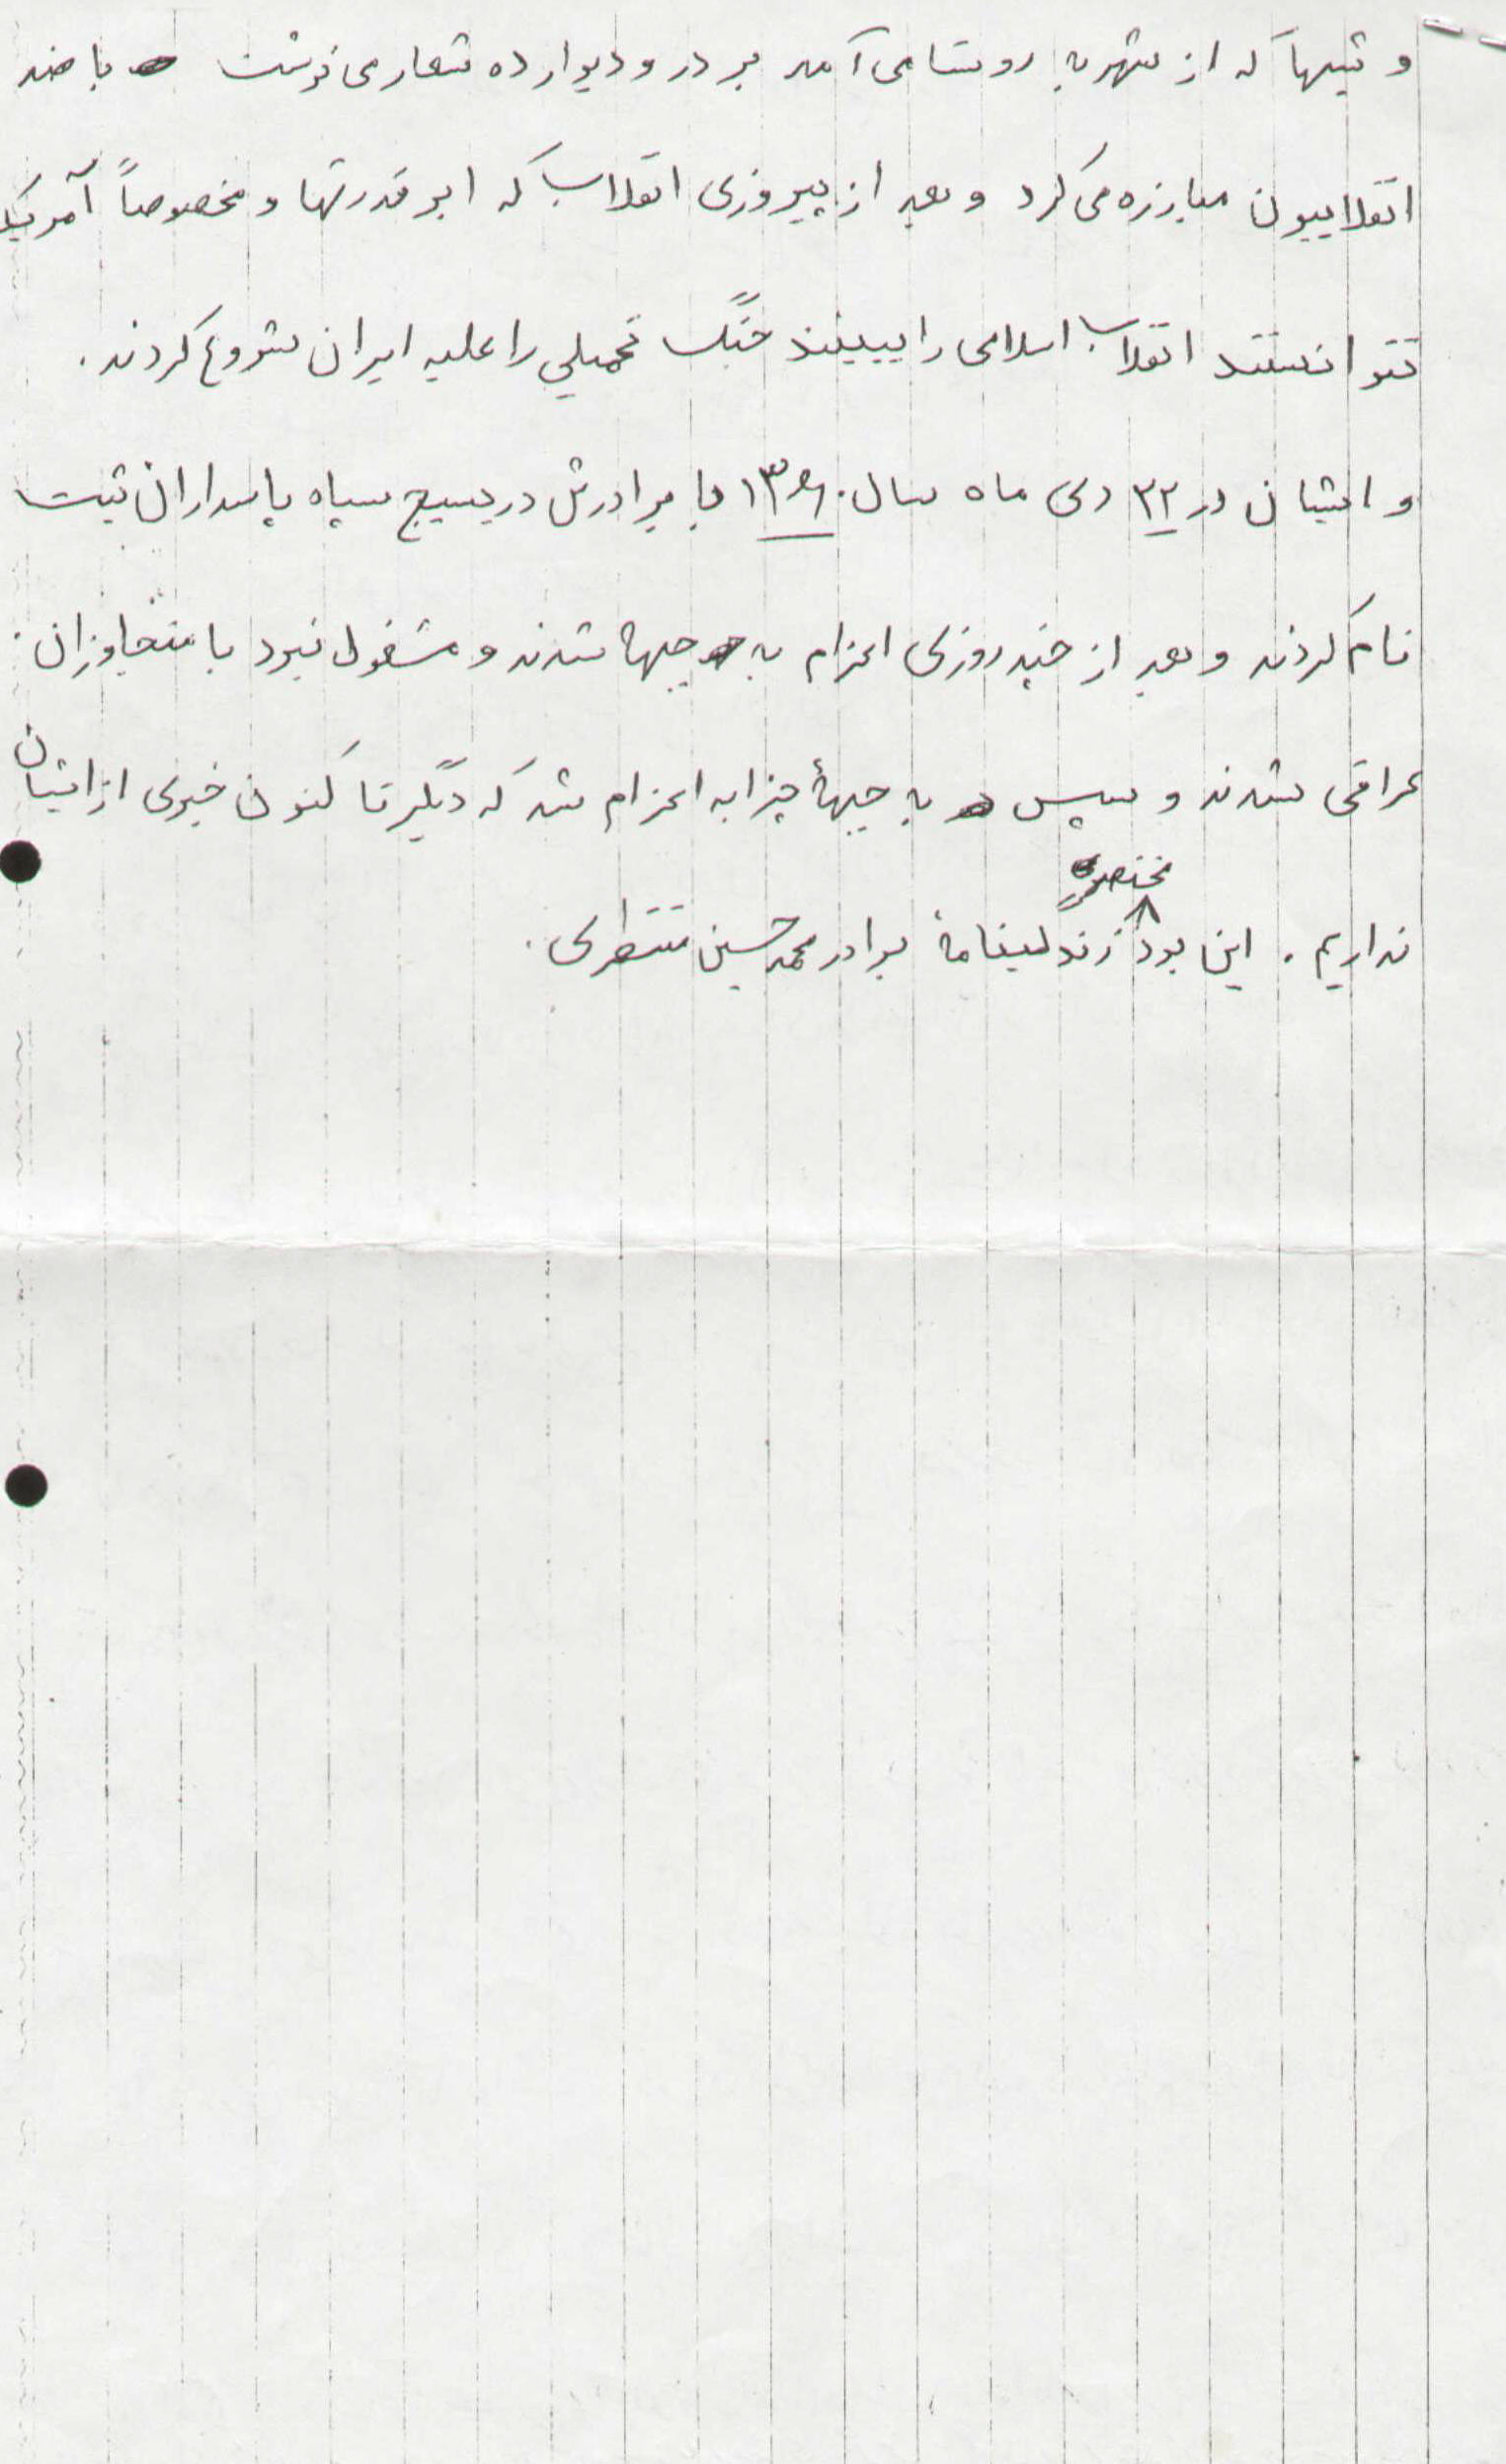 و شبها که از شهر به روستا می آمد بر در و دیوار ده شعار می نوشت با ضد
انقلابیون مبارزه می کرد و بعد از پیروزی انقلاب که ابرقدرتها و مخصوصاً آمریکا
نتوانستند انقلاب اسلامی را ببینند جنگ تحمیلی را علیه ایران شروع کردند.
و ایشان در ۲۲ دی ماه سال ۱۳۶۰ با برادرش در بسیج سپاه پاسداران ثبت
نام کردند و بعد از چند روزی اعزام به جبهه شدند و مشغول نبرد با متجاوزان
عراقی شدند و سپس به جبههٔ چزابه اعزام شد که دیگر تا کنون خبری از ایشان
نداریم. این بود مختصری زندگینامهٔ برادر محمد حسین منتظری.